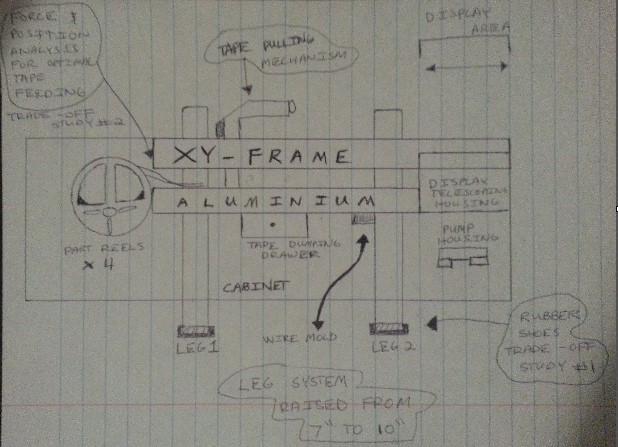 FORCE &
POSITION
ANALYSIS
FOR OPTIMAL
TAPE
FEEDING
TRADE-OFF
STUDY #2
TAPE PULLING
MECHANISM
DISPLAY
AREA
XY-FRAME
ALUMINIUM
DISPLAY
TELESCOPING
HOUSING
PART REELS
X 4
TAPE DUMPING
DRAWER
PUMP
HOUSING
CABINET
WIRE MOLD
LEG 1
LEG 2
RUBBER
SHOES
TRADE-OFF
STUDY #1
LEG SYSTEM
RAISED FROM
7" TO 10"